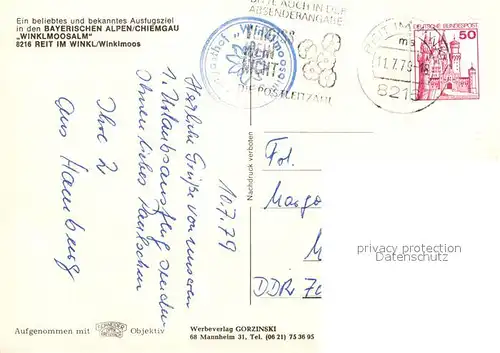 Ein beliebtes und bekanntes Ausflugsziel
in den BAYERISCHEN ALPEN/CHIEMGAU
„WINKLMOOSALM"
8216 REIT IM WINKL/Winklmoos
AUCH IN DER
ABSENDERANGABE
NICHT
DIE POSTLEITZAHL
11.7.79
8216
DEUTSCHE BUNDESPOST
50
10.7.79
Herzliche Grüße von unserem
1. Urlaubsausflug senden
Ihnen liebes
Ihre 2
aus Hamburg
Nachdruck verboten
Frl.
DDR
privacy protection
Datenschutz
Aufgenommen mit
Objektiv
Werbeverlag GORZINSKI
68 Mannheim 31, Tel. (06 21) 75 36 95